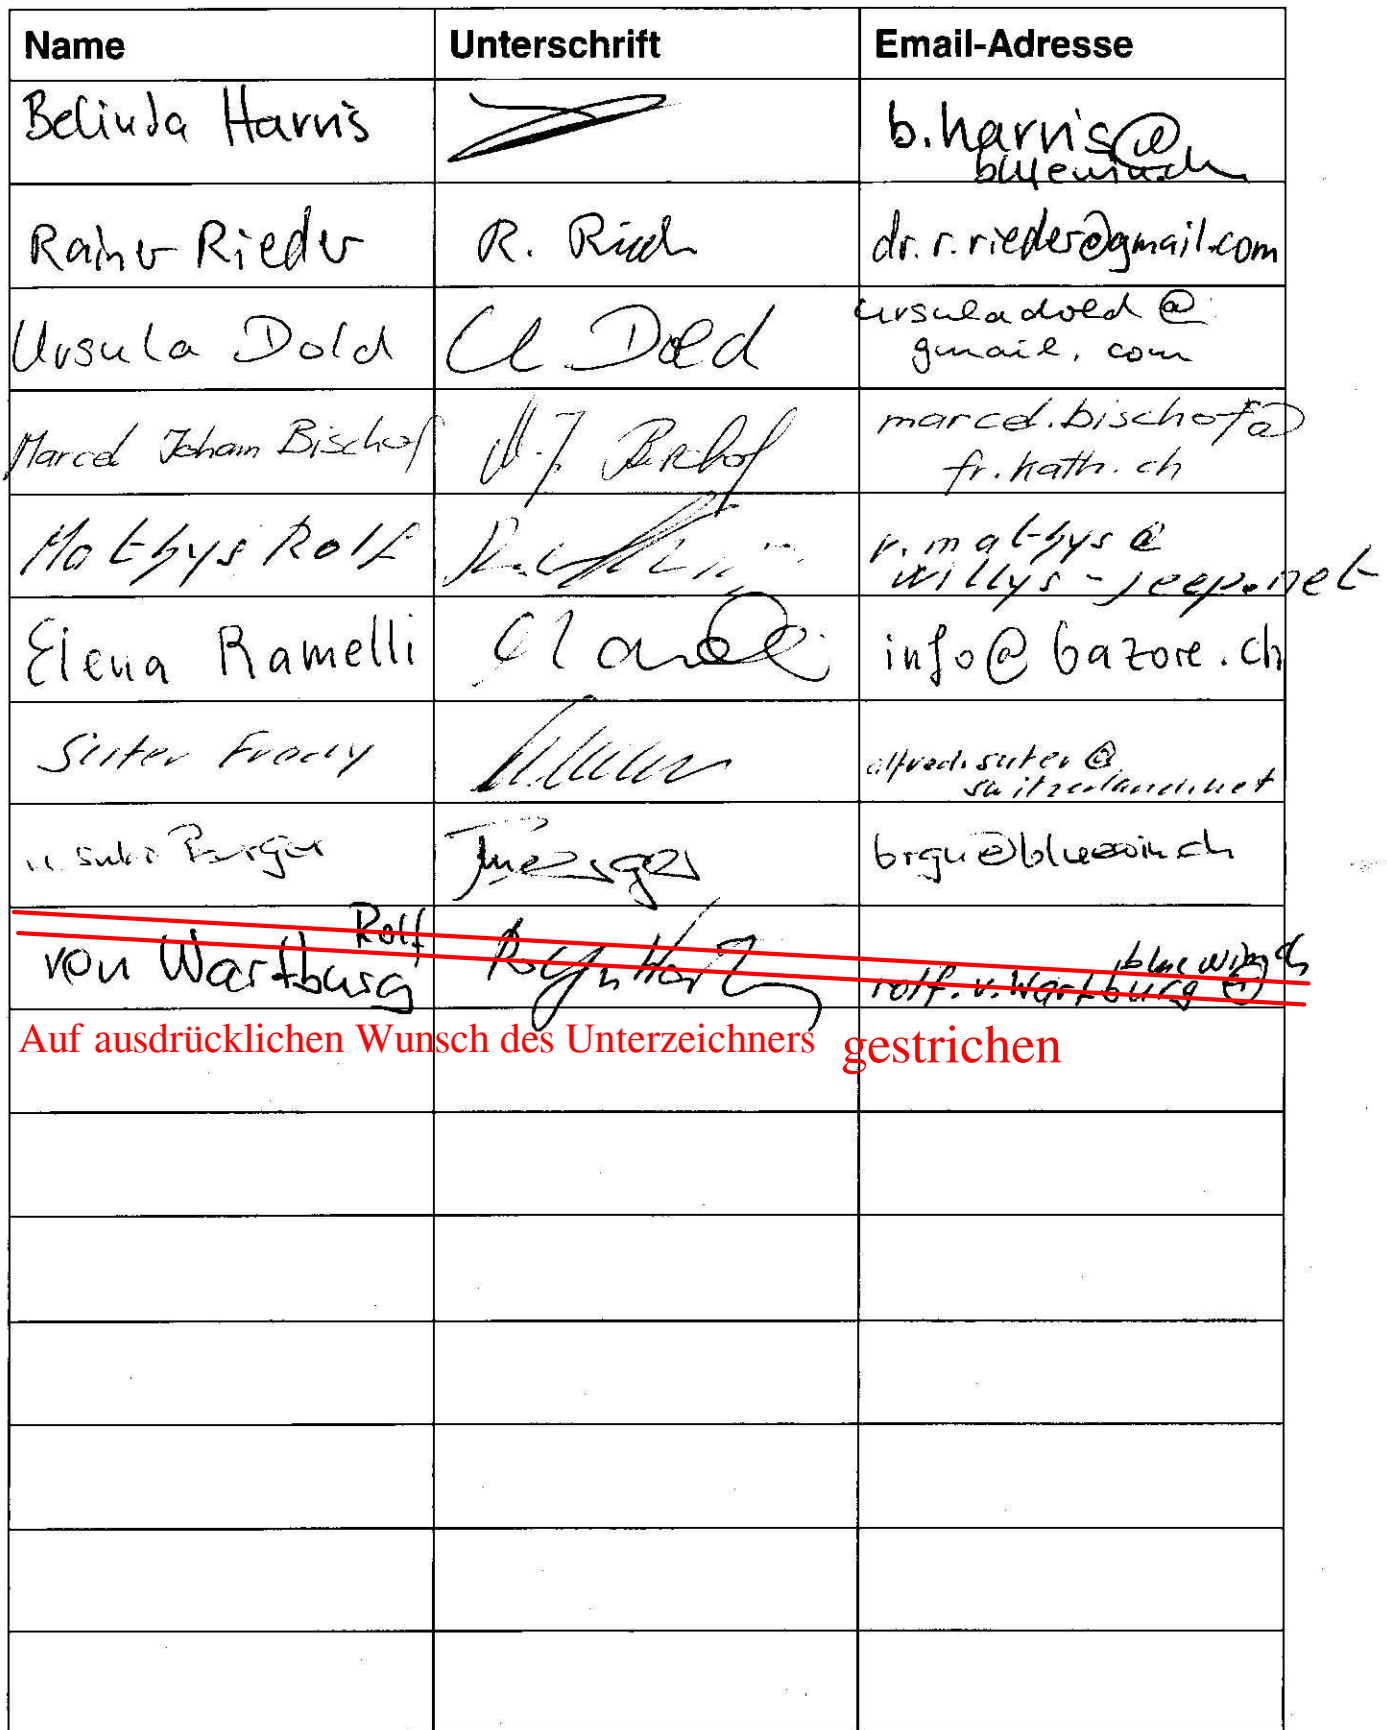 Name Unterschrift Email-Adresse
Belinda Harris b.harris@
bluewin.ch
Rainer Rieder R. Rieder dr.r.rieder@gmail.com
Ursula Dold U. Dold ursuladold@
gmail.com
Marcel Johann Bischof M. J. Bischof marcel.bischof@
fr.kath.ch
Mathys Rolf r.mathys@
willys-jeep.net
Elena Ramelli info@bazore.ch
Suter Fredy alfred.suter@
switzerland.net
Burger brgu@bluewin.ch
Rolf
von Wartburg bluewin.ch
rolf.v.Wartburg@
Auf ausdrücklichen Wunsch des Unterzeichners gestrichen